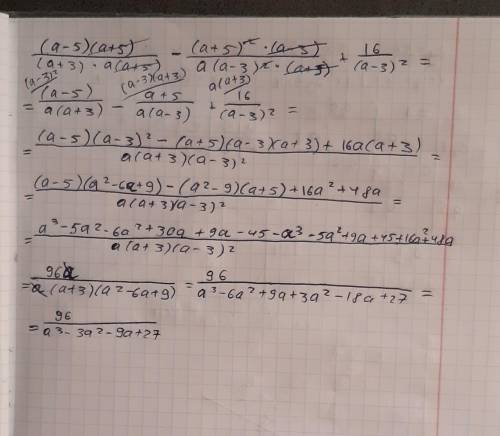 (a-5)(a+5) / (a+3)·a(a+5) - (a+5)²·(a-3) / a(a-3)²·(a+5) + 16 / (a-3)² =
= (a-3)² (a-5) / a(a+3) - (a-3)(a+3) a+5 / a(a-3) + a(a+3) 16 / (a-3)² =
= (a-5)(a-3)² - (a+5)(a-3)(a+3) + 16a(a+3) / a(a+3)(a-3)² =
= (a-5)(a²-6a+9) - (a²-9)(a+5) + 16a² + 48a / a(a+3)(a-3)² =
= a³-5a²-6a²+30a+9a-45-a³-5a²+9a+45+16a²+48a / a(a+3)(a-3)²
= 96a / a(a+3)(a²-6a+9) = 96 / a³-6a²+9a+3a²-18a+27 =
= 96 / a³-3a²-9a+27